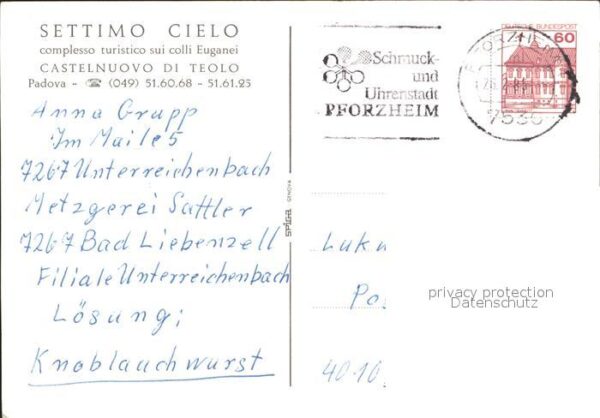 SETTIMO CIELO
complesso turistico sui colli Euganei
CASTELNUOVO DI TEOLO
Padova - ☎ (049) 51.60.68 - 51.61.25
Anna Grupp
Im Maile 5
7267 Unterreichenbach
Metzgerei Sattler
7267 Bad Liebenzell
Filiale Unterreichenbach
Lösung;
Knoblauchwurst
spiga GENOVA
Schmuck-
und
Uhrenstadt
PFORZHEIM
PFORZHEIM
7530
DEUTSCHE BUNDESPOST
60
Luku
Po
40-10
privacy protection
Datenschutz